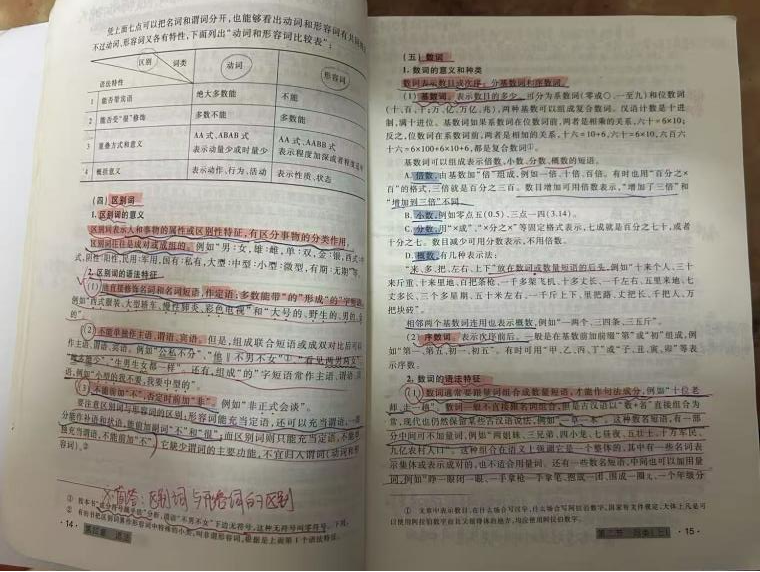 凭上面七点可以把名词和谓词分开,也能够看出动词和形容词有共同
不过动词、形容词又各有特性,下面列出"动词和形容词比较表":
区别 词类 动词 形容词
语法特性
1 能否带宾语 绝大多数能 不能
2 能否受"很"修饰 多数不能 多数能
3 重叠方式和意义 AA式、ABAB式 AA式、AABB式
表示动量少或时量少 表示程度加深或者程度适中
4 概括意义 表示动作、行为、活动 表示性质、状态
(四) 区别词
1. 区别词的意义
区别词表示人和事物的属性或区别性特征,有区分事物的分类作用。
区别词往往是成对或成组的。例如"男:女,雄:雌,单:双,金:银,西式:中
式,阴性:阳性,民用:军用,国有:私有,大型:中型:小型:微型,有期:无期"等。
2. 区别词的语法特征
(1) 能直接修饰名词和名词短语,作定语;多数能带"的"形成"的"字短语。
例如"西式服装、大型轿车、慢性肺炎、彩色电视"和"大号的、野生的、男的、
的"。
(2) 不能单独作主语、谓语、宾语。但是,组成联合短语或成双对比后可以
作主语、谓语、宾语。例如"公私不分"、"他‖不男不女①"、"看见两男两女"、
"生男生女都一样"。还有,组成"的"字短语常作主语、谓语、宾
语,例如"小型的我不要,我要中型的"。
(3) 不能前加"不",否定时前加"非"。例如"非正式会谈"。
要注意区别词与形容词的区别:形容词能充当定语,还可以充当谓语,一部
分能作补语和状语,能前加副词"不"和"很";而区别词则只能充当定语,不能单
独充当谓语,不能前加"不"。它缺少谓词的主要功能,不宜归入谓词(动词和形
容词)。②
简答:区别词与形容词的区别
· 14 · 第五章 语法
(五) 数词
1. 数词的意义和种类
数词表示数目或次序。分基数词和序数词。
(1) 基数词。表示数目的多少。可分为系数词(零或〇、一至九)和位数词
(十、百、千、万、亿、万亿、兆),两种基数可以组成复合数词。汉语计数是十进
制,满十进位。基数词如果系数词在位数词前,两者是相乘的关系,六十=10×6;
反之,位数词在系数词前,两者是相加的关系,十六=10+6,六十=6×10,六百六
十六=6×100+6×10+6,都是复合数词①。
基数词可以组成表示倍数、小数、分数、概数的短语。
A. 倍数。由基数加"倍"组成,例如一倍、十倍、百倍。有时也用"百分之×
百"的格式,三倍就是百分之三百。数目增加可用倍数表示,"增加了三倍"和
"增加到三倍"不同。
B. 小数。例如零点五(0.5)、三点一四(3.14)。
C. 分数。用"×成"、"×分之×"等固定格式表示,七成就是百分之七十,或者
十分之七。数目减少可用分数表示,不用倍数。
D. 概数。有几种表示法:
"来、多、把、左右、上下"放在数词或数量短语的后头,例如"十来个人、三十
来斤重、十来里地、百把条枪、一千多架飞机、十多丈长、一千左右、五里来地、七
丈多长、三个多星期、五十米左右、一千斤上下、里把路、丈把长、千把人、万
把块砖"。
相邻两个基数词连用也表示概数,例如"一两个、三四条、三五斤"。
(2) 序数词。表示次序前后。一般是在基数前加前缀"第"或"初"组成,例
如"第一、第五、初一、初五"。有时可用"甲、乙、丙、丁"或"子、丑、寅、卯"等表
示序数。
2. 数词的语法特征
(1) 数词通常要跟量词组合成数量短语,才能作句法成分,例如"十位老
师、上一趟"。数词一般不直接跟名词组合,但是古汉语以"数+名"直接组合为
常,现代也仍然保留某些古汉语说法,例如"一草一木"。这种数名短语,有一部
分中间可不加量词,例如"两姐妹、三兄弟、四小龙、七昼夜、五壮士、十万军民、
九亿农村人口"。这种组合在语义上强调它是一个整体的,其中有一些名词表
示集体或表示成对的,也不适合用量词。还有一些数名短语,中间也可以加田量
词,例如"睁一眼闭一眼、一手拿枪一手拿笔、
① 文章中表示数目,在什么场合写汉字,什么场合写阿拉伯数字,国家有文件规定。大体上凡是可
以使用阿拉伯数字而且又很得体的地方,均应使用阿拉伯数字。
第二节 词类(上) · 15 ·